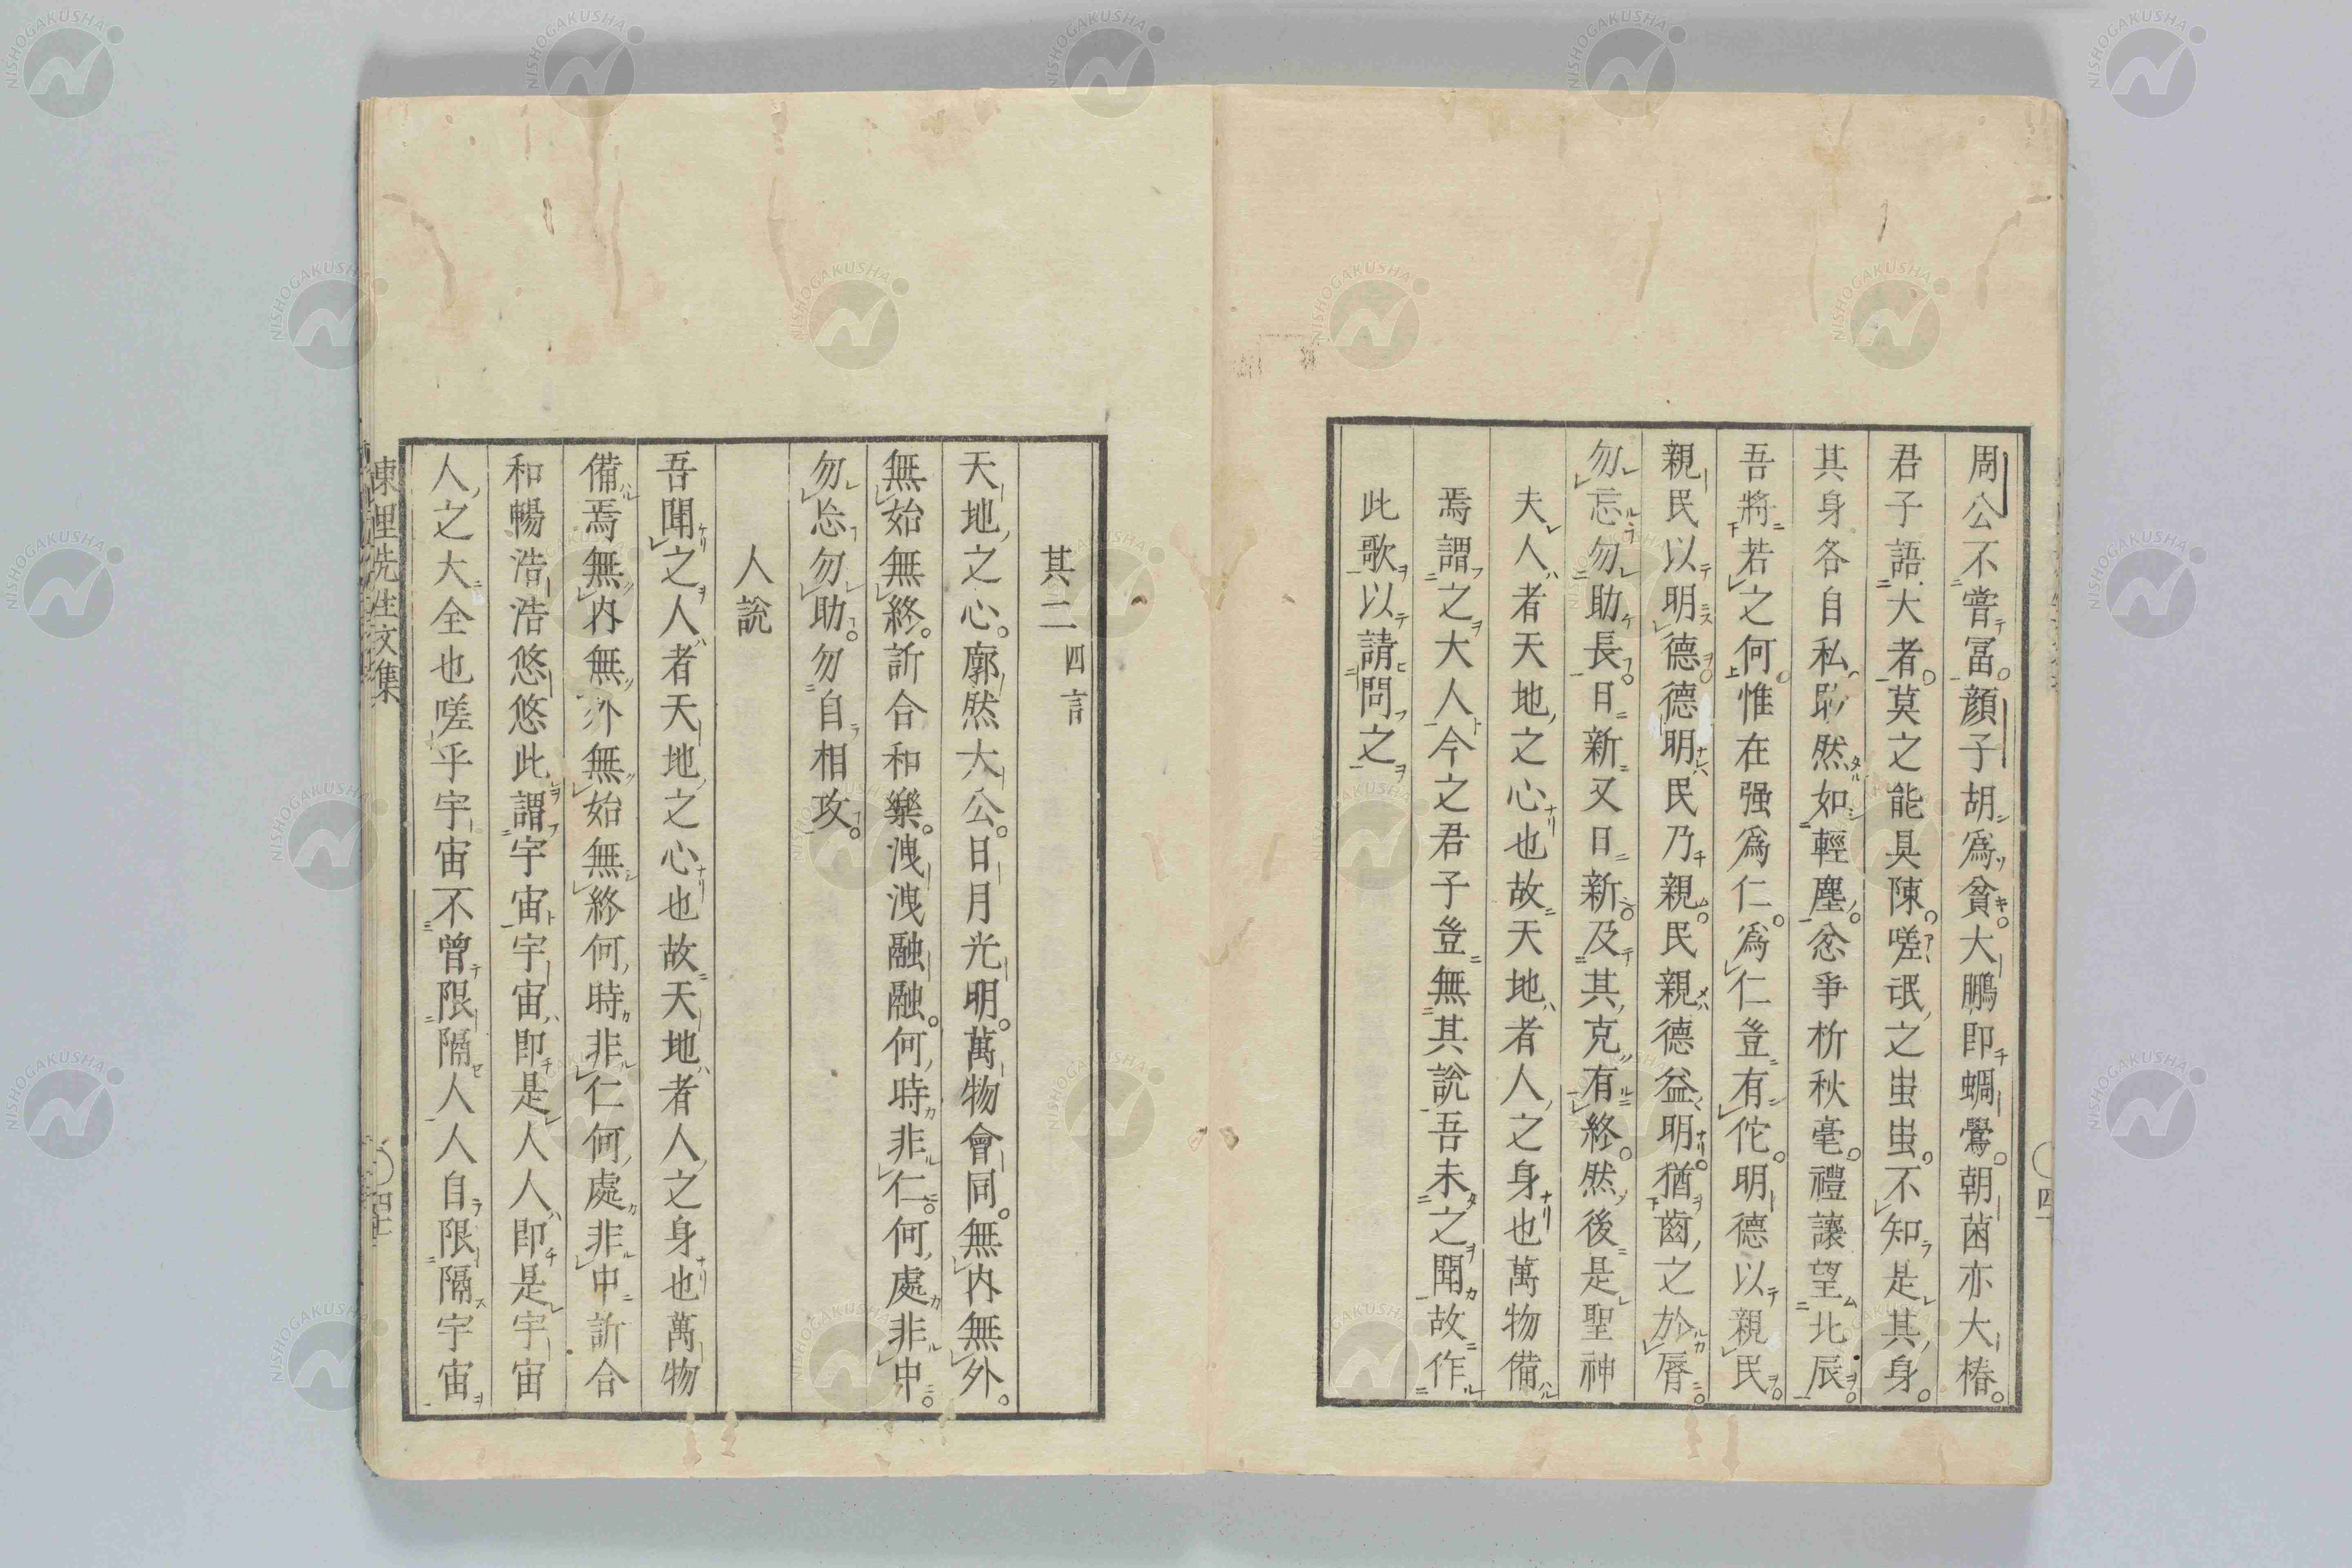 周公不嘗冨顔子胡爲貧大鵬即蜩鷽朝菌亦大椿
君子語大者莫之能具陳嗟氓之蚩蚩不知是其身
其身各自私眇然如輕塵忿爭析秋毫禮讓望北辰
吾將若之何惟在强爲仁爲仁豈有佗明德以親民
親民以明德德明民乃親民親德益明猶齒之於脣
勿忘勿助長日新又日新及其克有終然後是聖神
夫人者天地之心也故天地者人之身也萬物備
焉謂之大人今之君子豈無其説吾未之聞故作
此歌以請問之
其二四言
天地之心廓然大公日月光明萬物會同無内無外
無始無終訢合和樂洩洩融融何時非仁何處非中
勿忘勿助勿自相攻
人説
吾聞之人者天地之心也故天地者人之身也萬物
備焉無内無外無始無終何時非仁何處非中訢合
和暢浩浩悠悠此謂宇宙宇宙即是人人即是宇宙
人之大全也嗟乎宇宙不曾限隔人人自限隔宇宙
東里先生文集
NISHOGAKUSHA